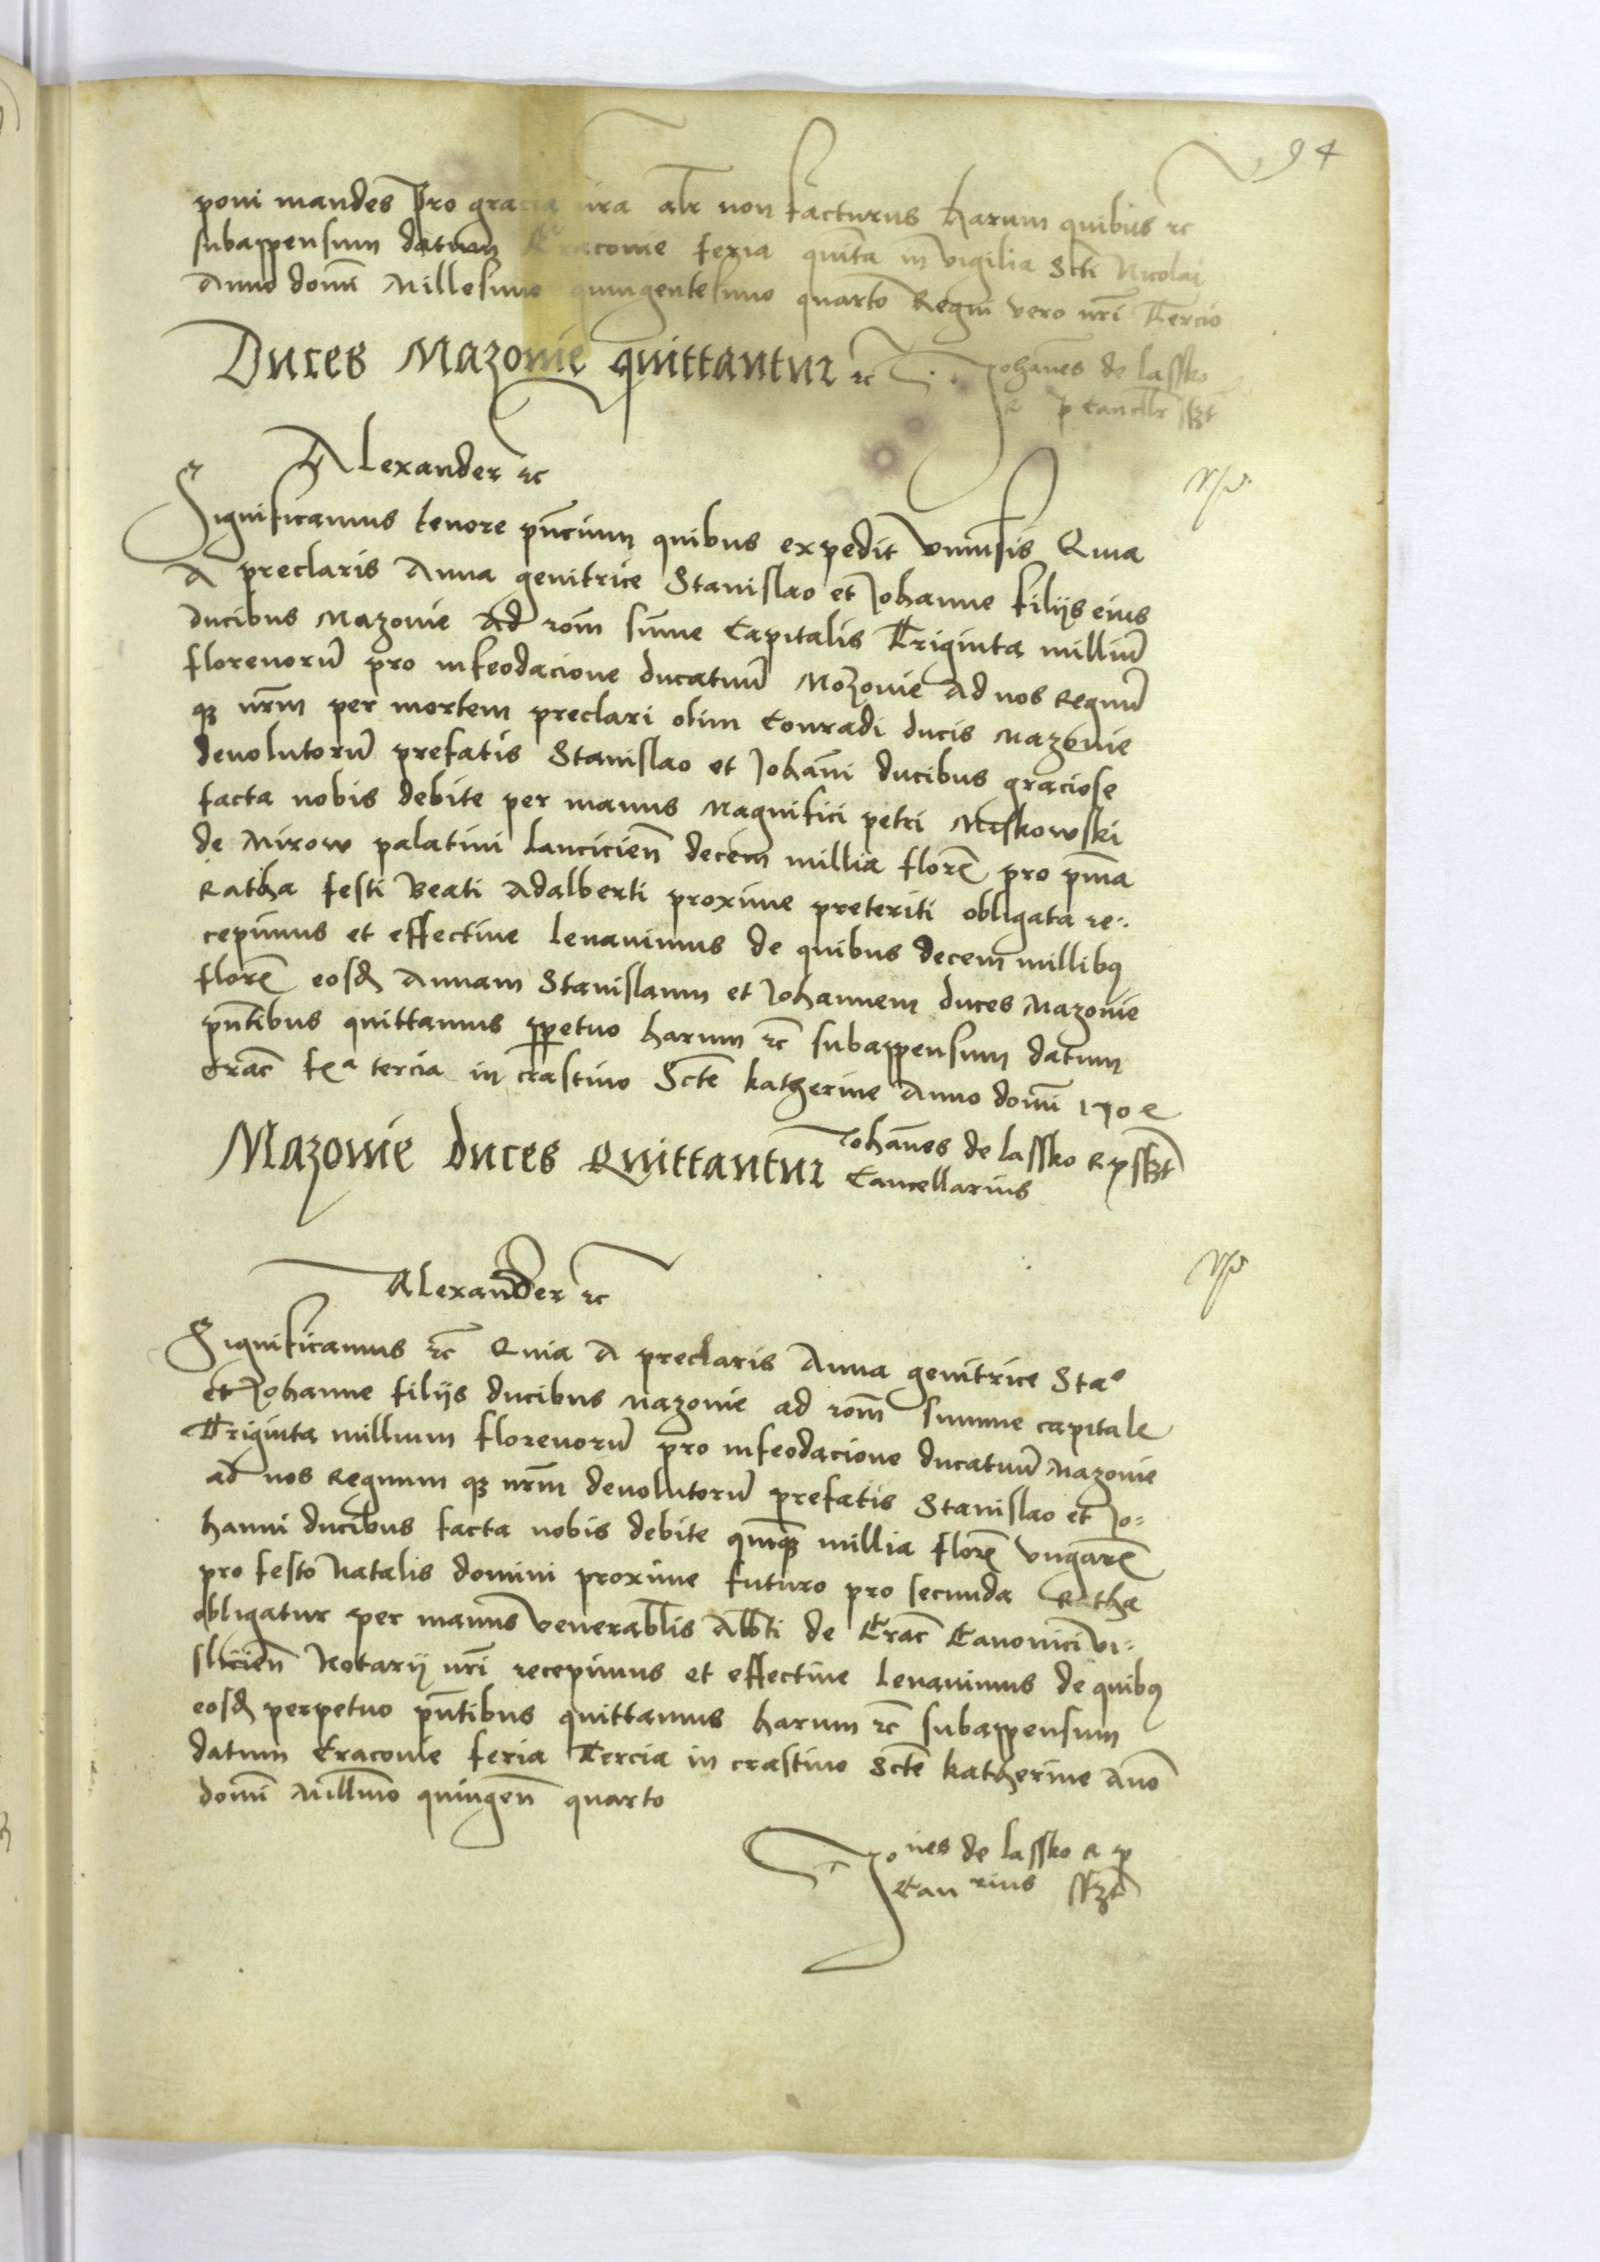 94
poni mandes Pro gracia nra alr non facturus harum quibus rc
subappensum datum Cracouie feria quinta in vigilia Scti Nicolai
Anno domi Millesimo quingentesimo quarto Regni vero nri Tercio
Duces Mazouie quittantur rc
Johanes de lassko
R p Cancellr sszt
Alexander rc
Significamus tenore pncium quibus expedit vniusis Quia
A preclaris Anna genitrice Stanislao et Johanne filijs eius
ducibus Mazouie Ad rom sume Capitalis Triginta milliu
florenoru pro infeodacione ducatuu Mozouie ad nos Regnu
qz nrm per mortem preclari olim Conradi ducis Mazouie
deuolutoru prefatis Stanislao et Johani ducibus graciose
facta nobis debite per manus Magnifici petri Miskowski
de Mirow palatini lancicien decem millia floren pro pma
Ratha festi Beati Adalberti proxime preteriti obligata re:
cepimus et effectiue leuauimus de quibus decem millibq
floren eosd Annam Stanislaum et Johannem duces Mazouie
pntibus quittamus ppetuo harum rc subappensum datum
Crac fra tercia in crastino Scte katherine Anno domi 1504
Mazouie duces Quittantur
Johanes de lassko R p sszt
Cancellarius
Alexander rc
Significamus rc Quia A preclaris Anna genitrice Stao
et Johanne filijs ducibus Mazouie ad rom summe capitale
Triginta millium florenoru pro infeodacione ducatuu Mazouie
ad nos Regnum qz nrm deuolutoru prefatis Stanislao et Jo:
hanni ducibus facta nobis debite quinqz millia floren vngaren
pro festo Natalis domini proxime futuro pro secunda Ratha
obligatur per manus venerablis Albti de Crac Canonici vi:
slicien Notarij nri recepimus et effectiue leuauimus de quibq
eosd perpetuo pntibus quittamus harum rc subappensum
datum Cracouie feria Tercia in crastino Scte katherine Ano
domi Millmo quingen quarto
Jones de lassko R p
Canrius sszt